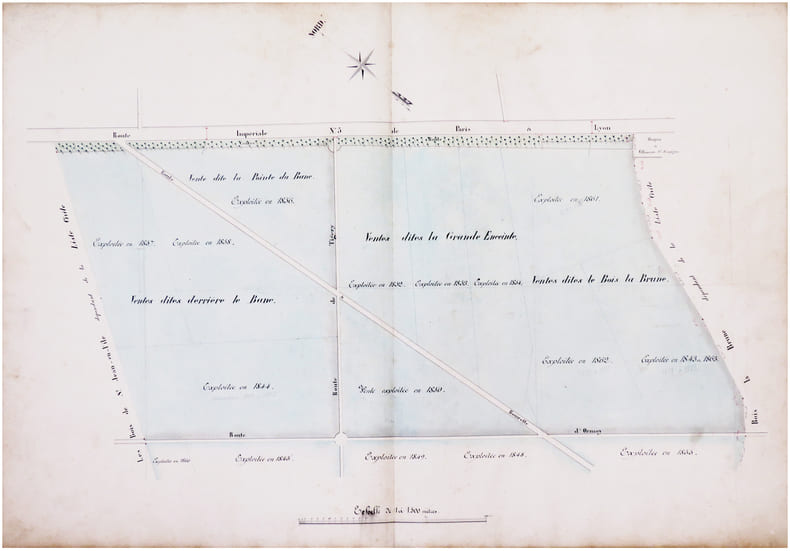 NORD.
Route Impériale N° 5 de Paris à Lyon
Route
Vente dite la Pointe du Banc.
Exploitée en 1856.
Exploitée en 1861.
Exploitée en 1857.
Exploitée en 1858.
Ventes dites la Grande Enceinte.
Exploitée en 1852.
Exploitée en 1853.
Exploitée en 1854.
Ventes dites le Bois la Brune.
Ventes dites derrière le Banc.
Exploitée en 1862.
Exploitée en 1843 et 1863.
Exploitée en 1844.
Vente exploitée en 1850.
Route de Tigery
Les Bois de St Jean-en-l'Ile dépendant de la Liste Civile
Bois la Brune dépendant de la Liste Civile
Route d'Ormoy
Exploitée en 1845.
Exploitée en 1849.
Exploitée en 1848.
Exploitée en 1855.
Echelle de 1 à 1500 mètres.